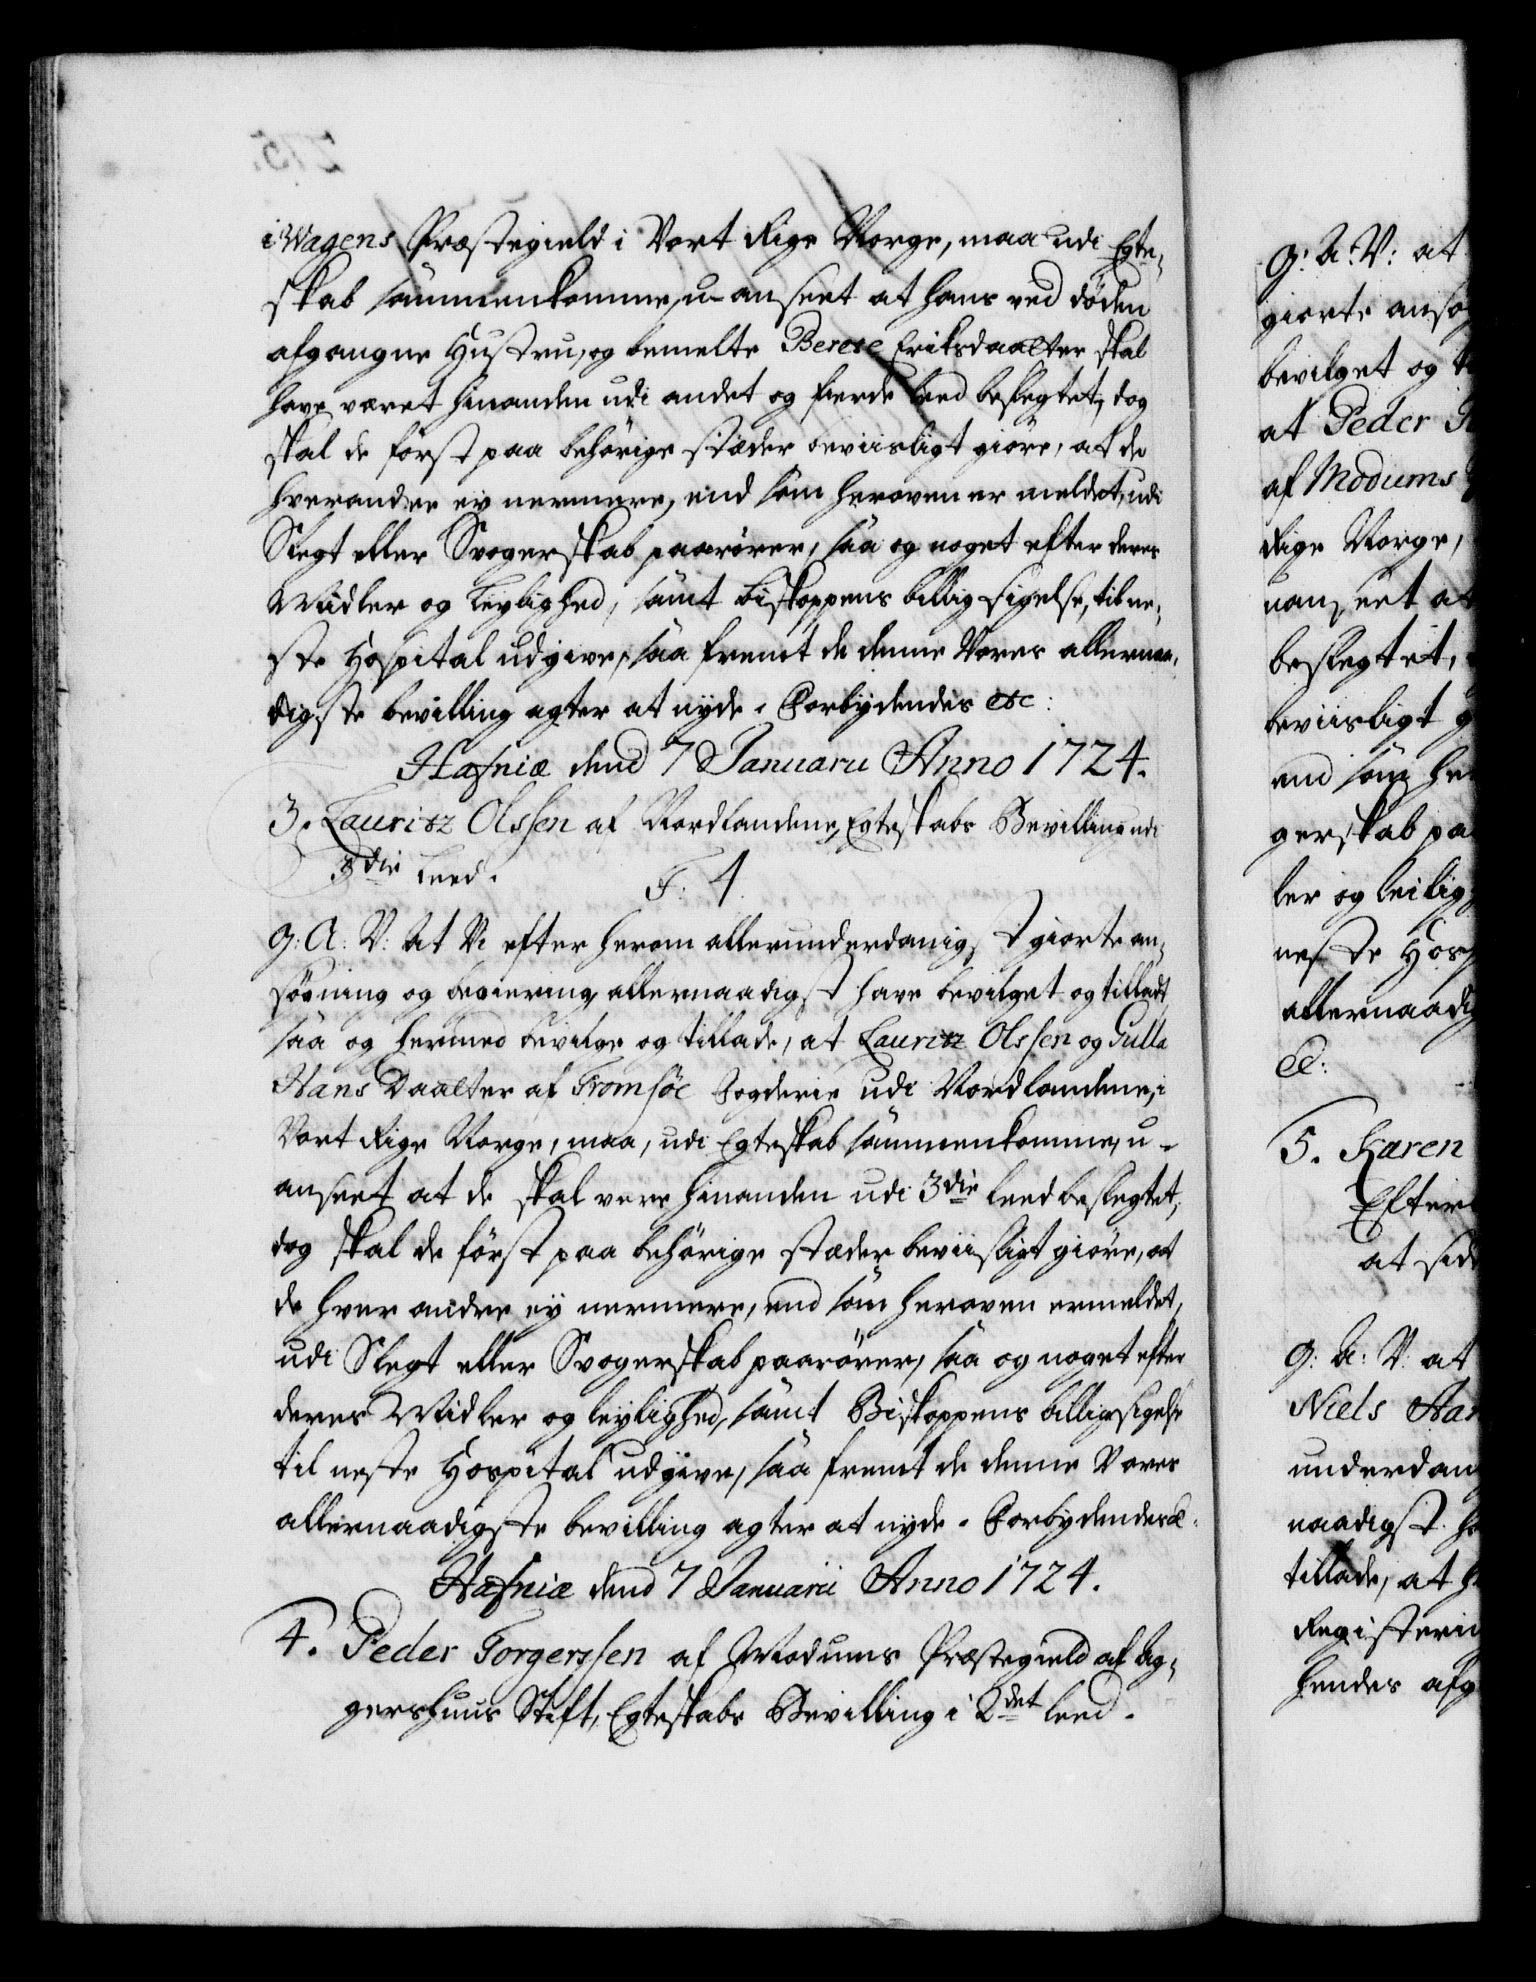 i Wagens Præstegield i Vort Rige Norge, maa udi Egte-
skab sammenkomme, u-anseet at hans ved døden
afgangne Hustru, og bemelte Berete Eriksdaatter skal
have været hinanden udi andet og fierde Leed beslegtet, dog
skal de først paa behørige stæder beviisligt giøre, at de
hverandre ey nermere, end som heroven er meldet, udi
Slegt eller Svogerskab paarører, saa og noget efter deres
Midler og Leylighed, samt biskoppens billig sigelse, til ne-
ste Hospital udgive, saa fremt de denne Vores allernaa-
digste bevilling agter at nyde. Forbydendes etc:
Hafniæ dend 7 Januarii Anno 1724.
3. Lauritz Olssen af Nordlandene, Egteskabs Bevilling udi
3die Leed.
F: 4
G: A: V: At Vi efter herom allerunderdanigst giorte an-
søgning og begiering, allernaadigst have bevilget og tilladt,
saa og hermed bevilge og tillade, at Lauritz Olssen og Gulla
Hans Daatter af Tromsøe Fogderie udi Nordlandene, i
Vort Rige Norge, maa, udi Egteskab sammenkomme, u-
anseet at de skal vere hinanden udi 3die Leed beslegtet,
dog skal de først paa behørige stæder beviisligt giøre, at
de hver andre ey nermere, end som heroven ermeldet,
udi Slegt eller Svogerskab paarører, saa og noget efter
deres Midler og leylighed, samt Biskoppens billigsigelse
til neste Hospital udgive, saa fremt de denne Vores
allernaadigste bevilling agter at nyde. Forbydendes &.
Hafniæ dend 7 Januarii Anno 1724.
4. Peder Torgerssen af Modums Præstegield af Ag-
gershuus Stift, Egteskabs Bevilling i 2det Leed.
G: A: V: at
giorte ansøg
bevilget og
at Peder
af Modums
Rige Norge,
uanseet at
beslegtet,
beviisligt
end som
gerskab
ler og leilig
neste Hosp
allernaadig
&:
5. Karen
Efter
at sid
G: A: V: at
Niels Han
underdan
naadigst
tillade, at
Registerin
hendes afg